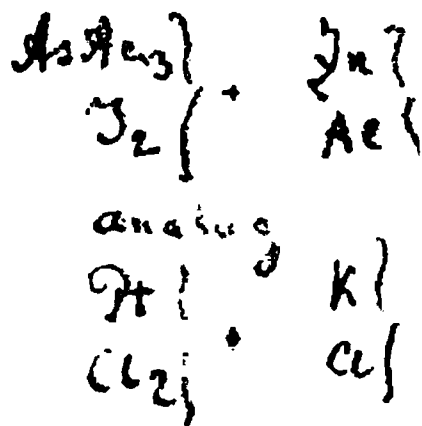 AsAe3 } + Jn }
J2 } Ae }
analog
Pt } + K }
Cl2 } Cl }